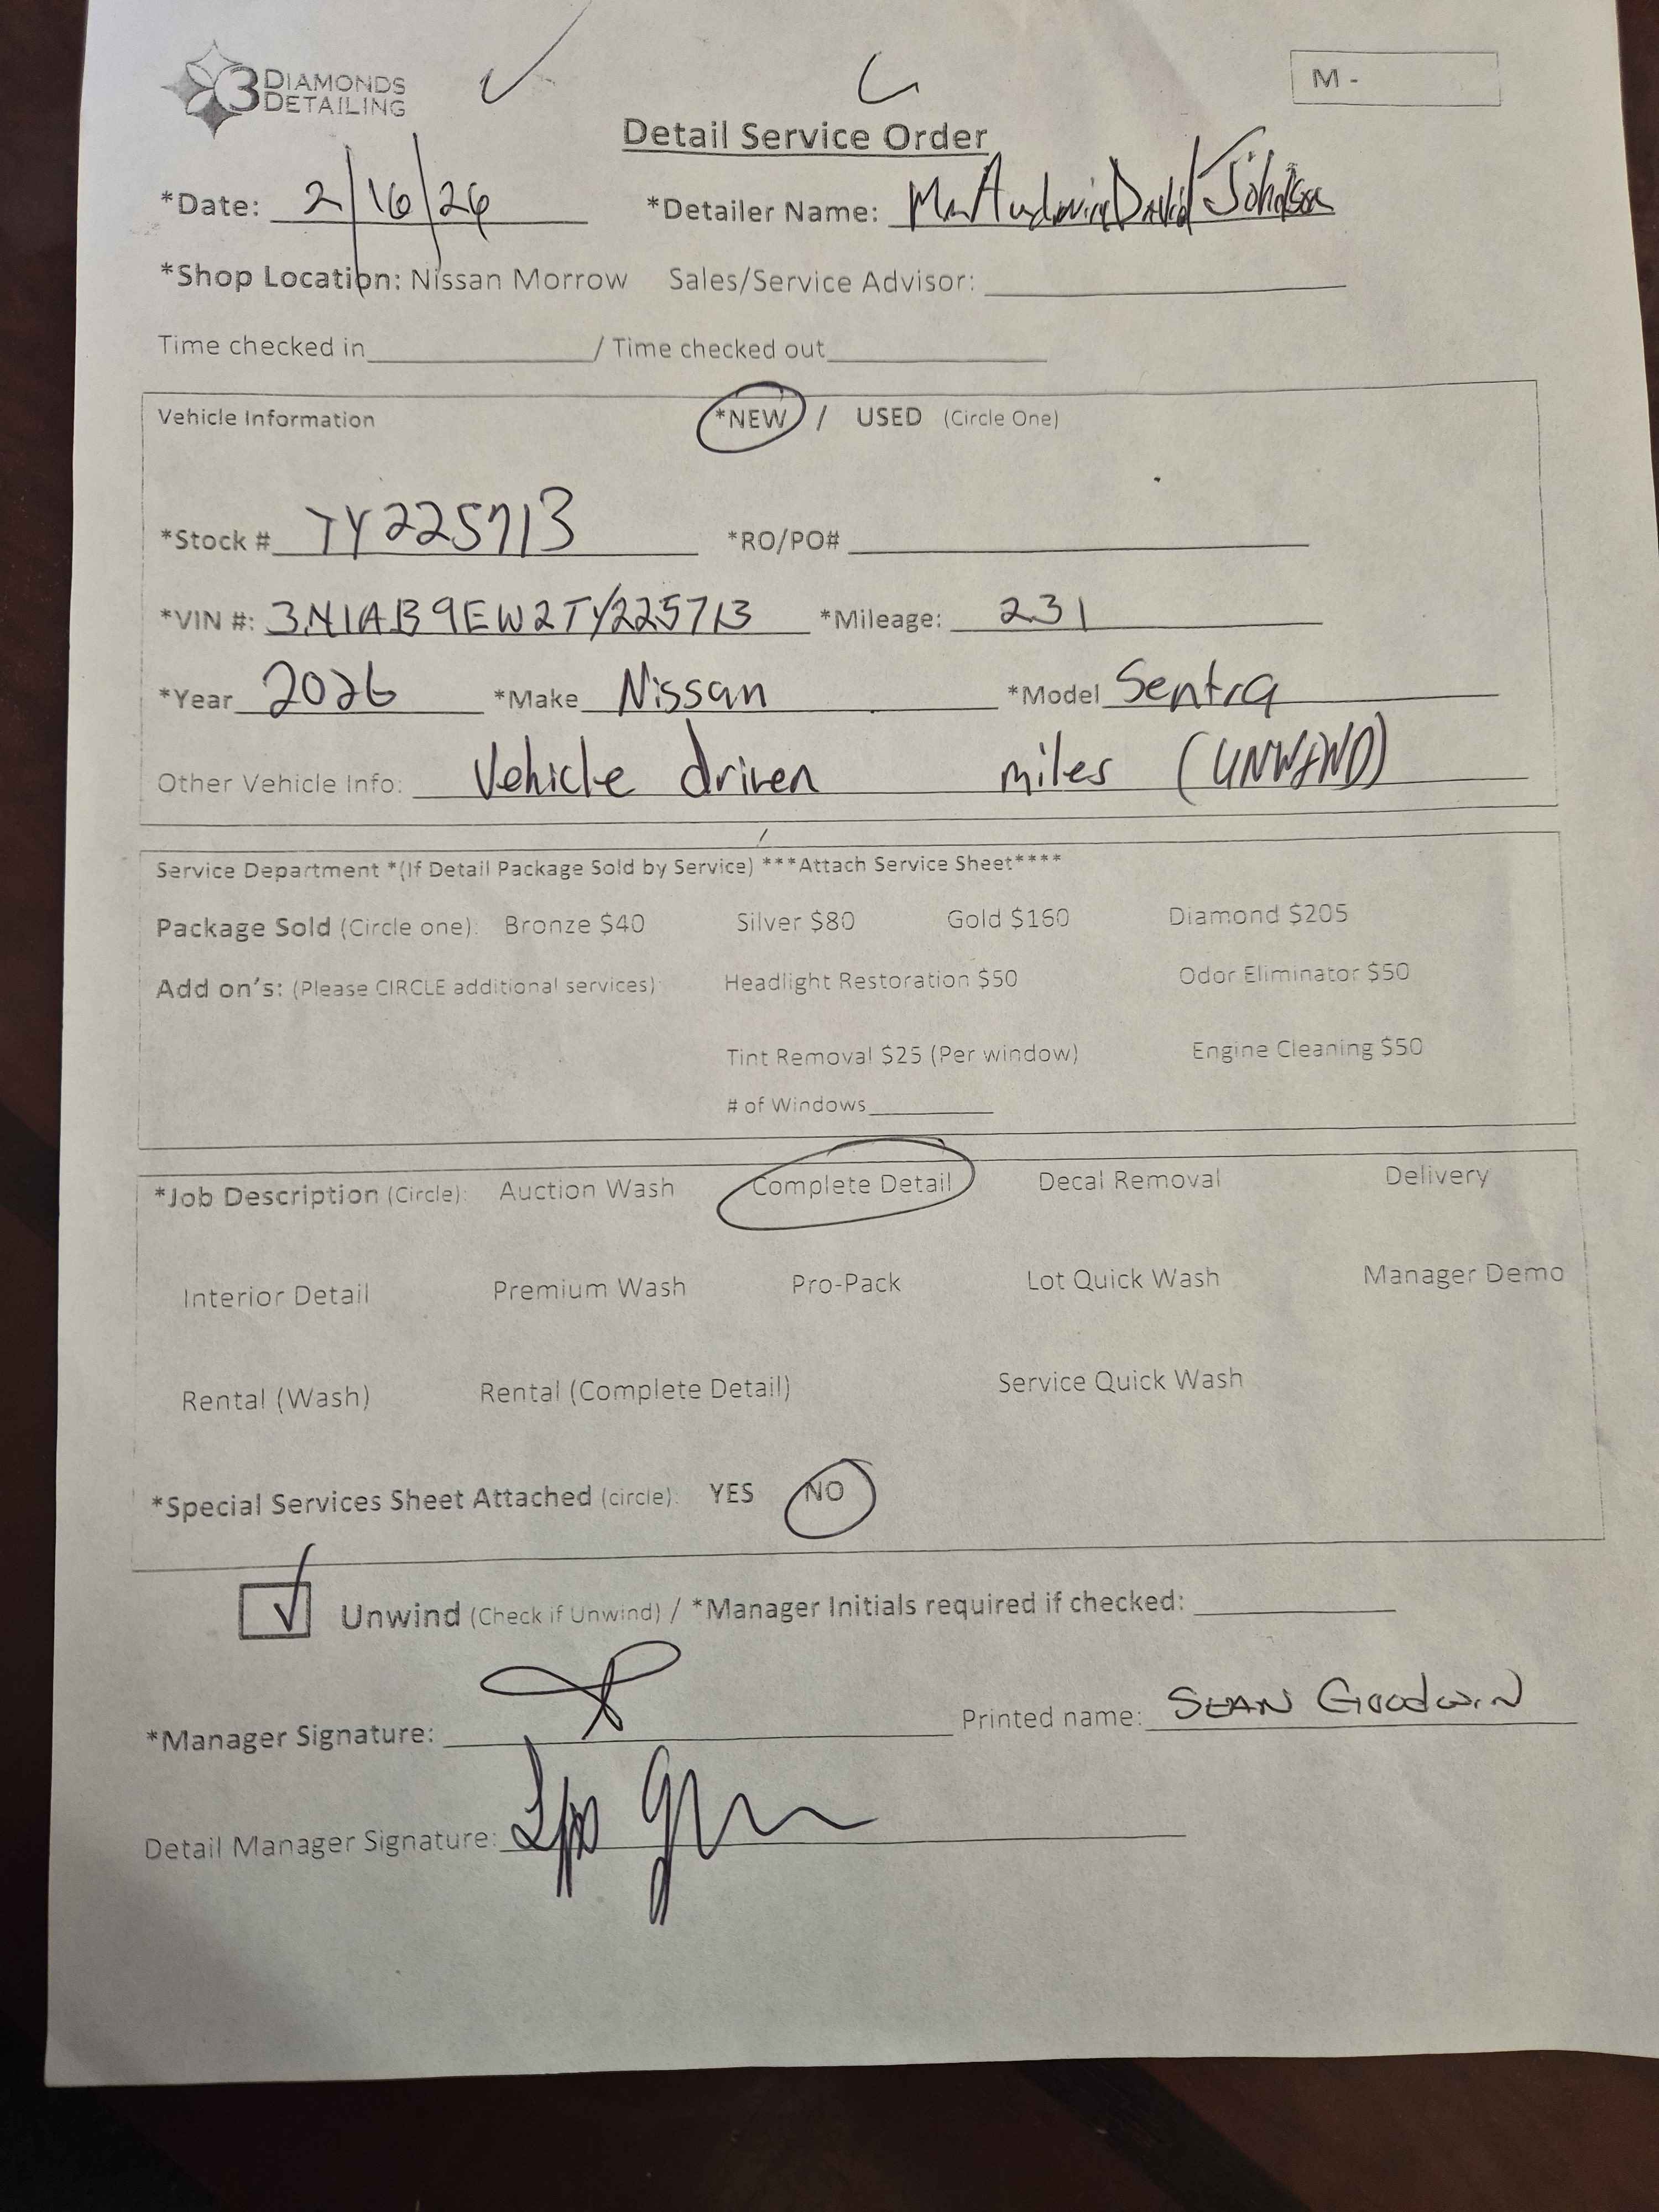 3 DIAMONDS
DETAILING
M -
Detail Service Order
*Date: 2/16/26 *Detailer Name: David Johnson
*Shop Location: Nissan Morrow Sales/Service Advisor:
Time checked in / Time checked out
Vehicle Information *NEW / USED (Circle One)
*Stock # TY225713 *RO/PO#
*VIN #: 3N1AB9EW2TY225713 *Mileage: 231
*Year 2026 *Make Nissan *Model Sentra
Other Vehicle Info: Vehicle driven miles (UNWIND)
Service Department *(If Detail Package Sold by Service) ***Attach Service Sheet****
Package Sold (Circle one): Bronze $40 Silver $80 Gold $160 Diamond $205
Add on's: (Please CIRCLE additional services) Headlight Restoration $50 Odor Eliminator $50
Tint Removal $25 (Per window) Engine Cleaning $50
# of Windows
*Job Description (Circle): Auction Wash Complete Detail Decal Removal Delivery
Interior Detail Premium Wash Pro-Pack Lot Quick Wash Manager Demo
Rental (Wash) Rental (Complete Detail) Service Quick Wash
*Special Services Sheet Attached (circle): YES NO
Unwind (Check if Unwind) / *Manager Initials required if checked:
*Manager Signature: Printed name: SEAN Goodwin
Detail Manager Signature: